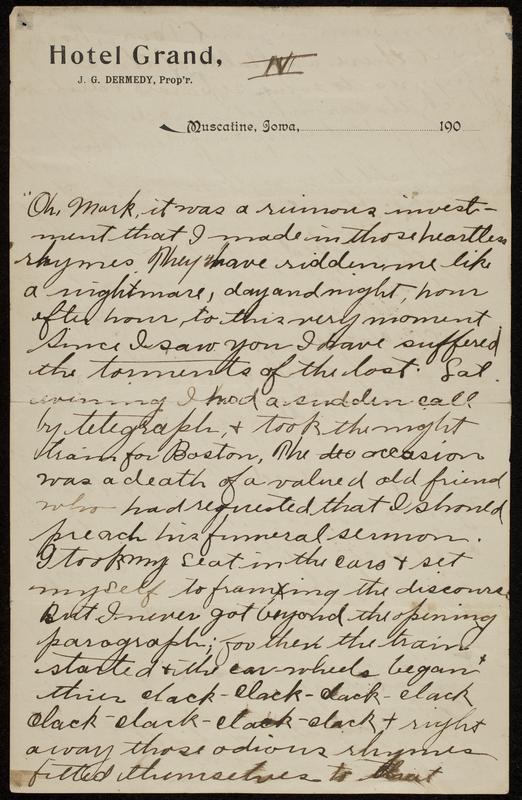 Hotel Grand,
IV
J. G. DERMEDY, Prop'r.
Muscatine, Iowa, 190
"Oh, Mark, it was a ruinous invest-
ment that I made in those heartless
rhymes They have ridden me like
a nightmare, day and night, hour
after hour, to this very moment
Since I saw you I have suffered
the torments of the lost. Sat.
evening I had a sudden call
by telegraph, & took the night
train for Boston, The occasion
was a death of a valued old friend
who had requested that I should
preach his funeral sermon.
I took my seat in the cars & set
myself to framing the discourse
But I never got beyond the opening
paragraph; for then the train
started & the car-wheels began
their clack-clack-clack-clack
clack-clack-clack-clack & right
away those odious rhymes
fitted themselves to that